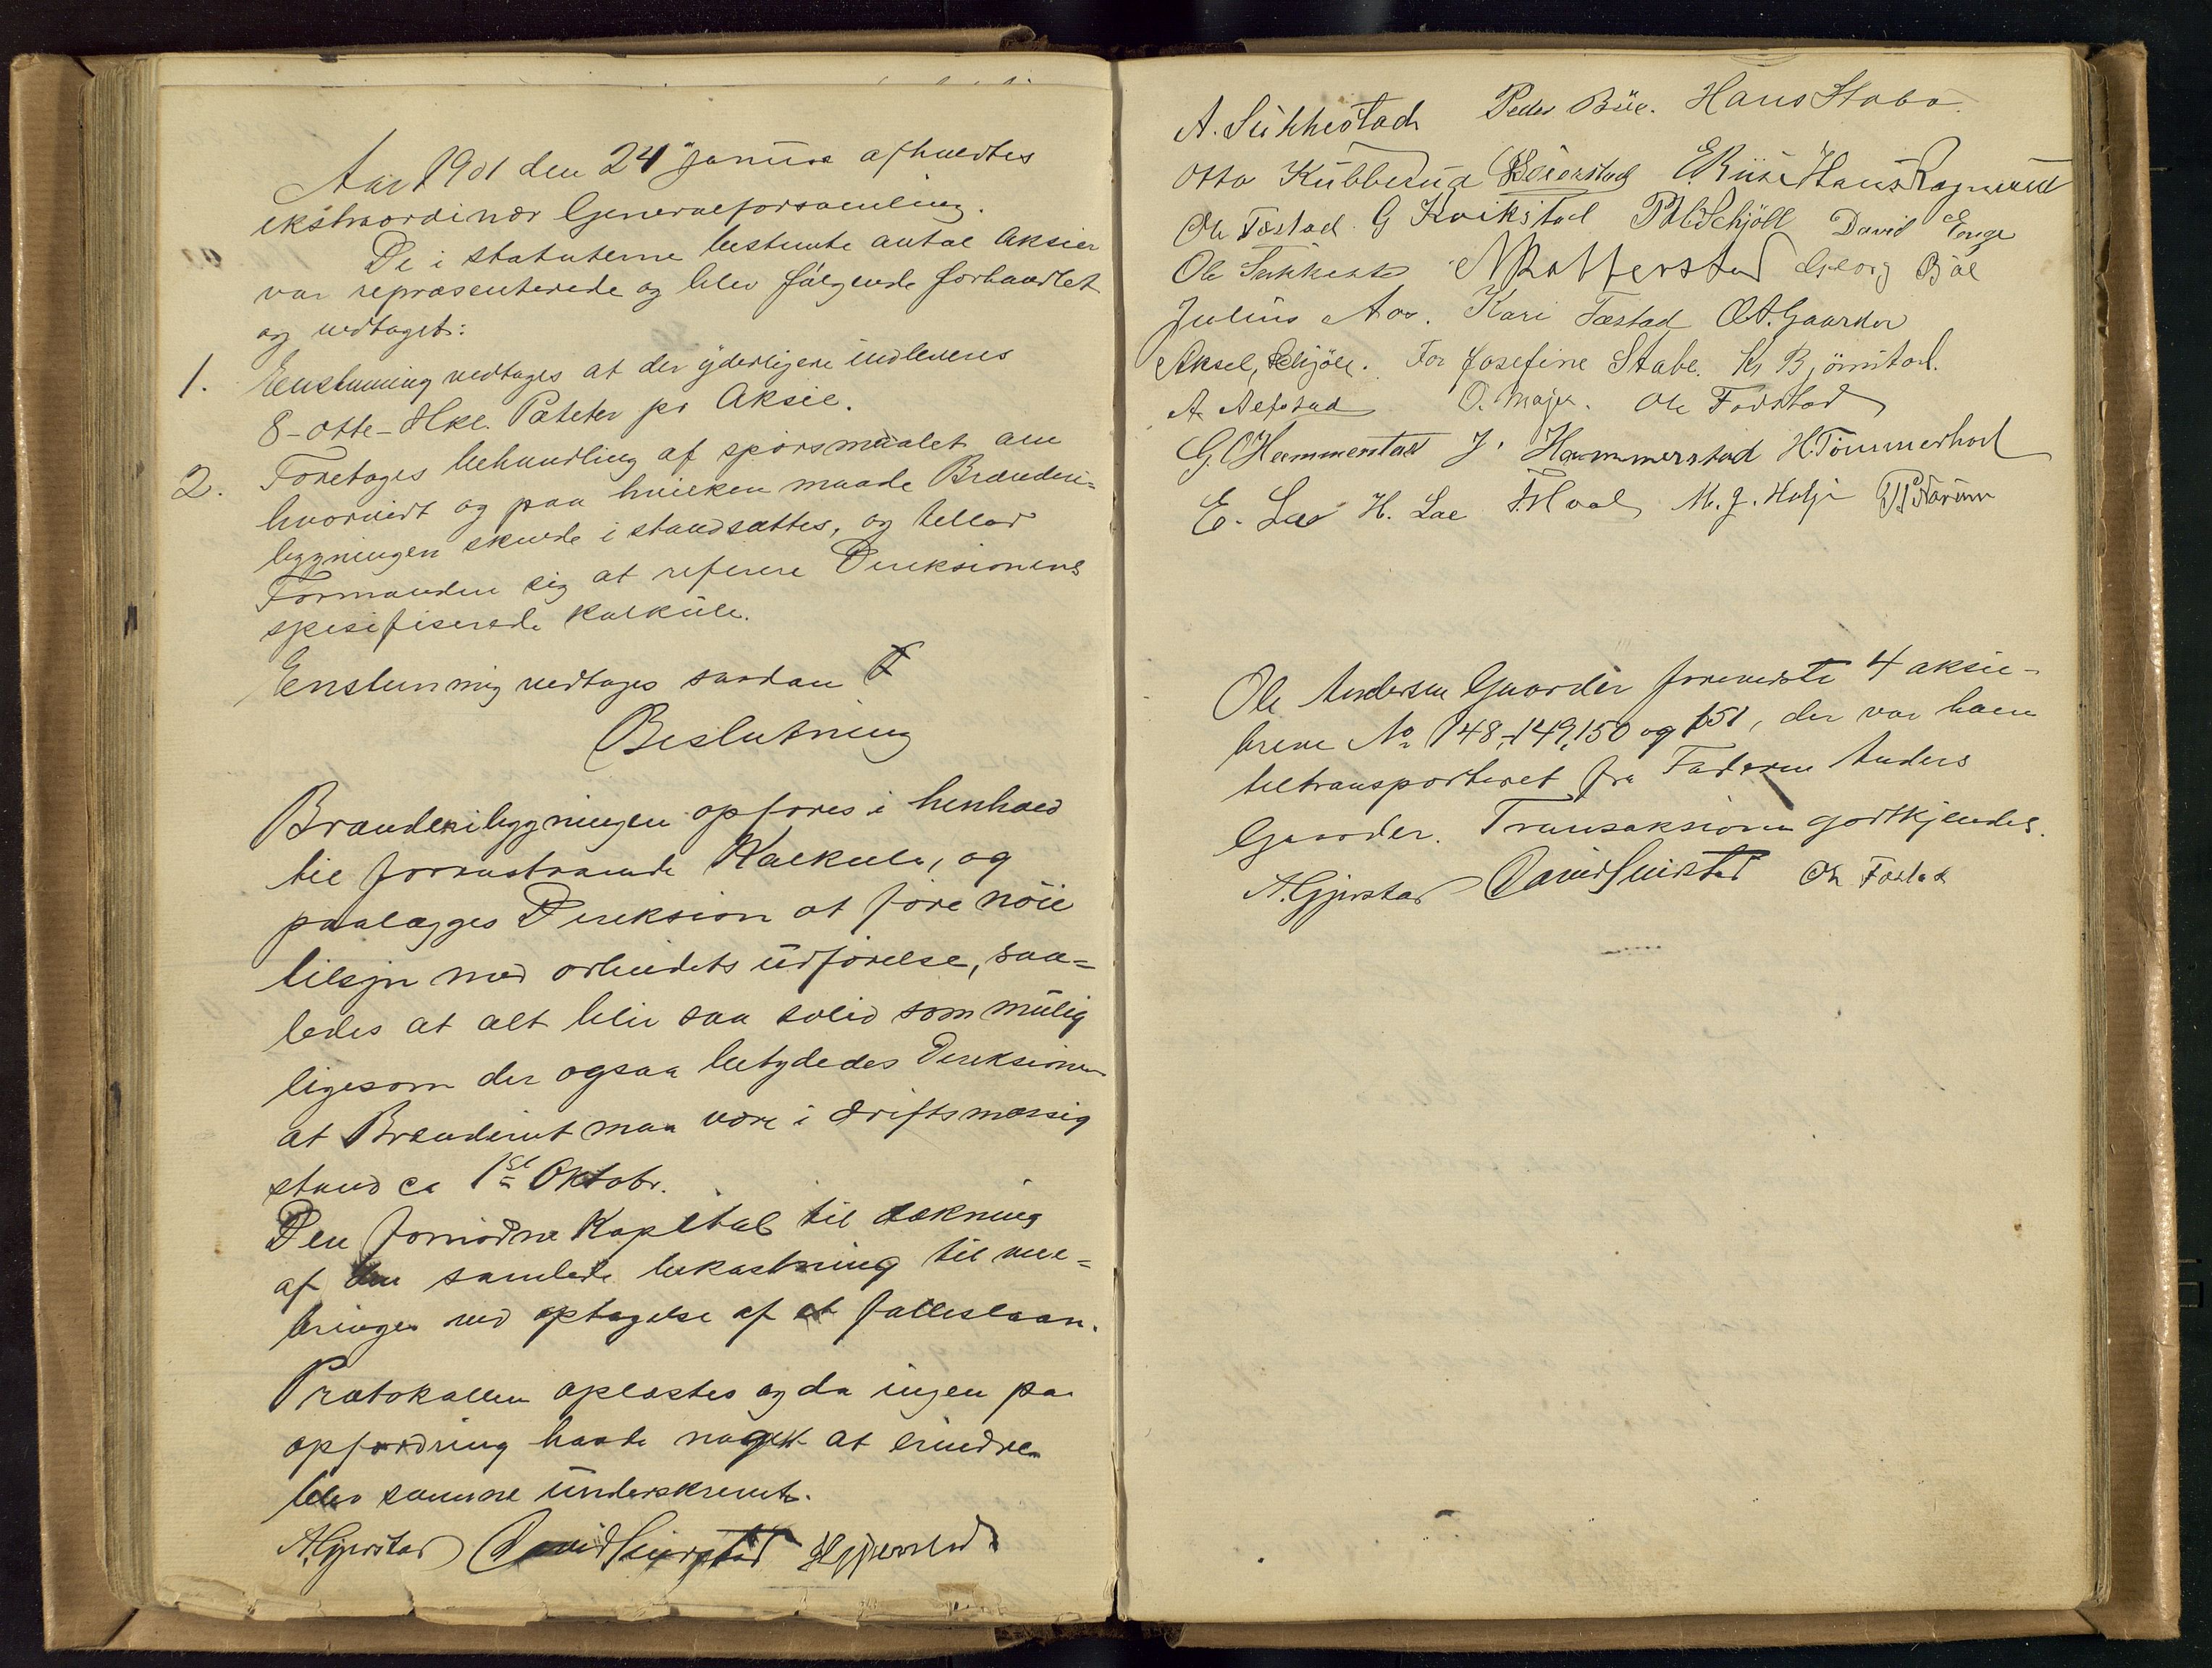 Aar 1901 den 24 Januar afholdtes
ekstraordinær Generalforsamling.
De i statuterne bestemte antal Aksier
var repræsenterede og blev følgende forhandlet
og vedtaget:
1. Enstemmig vedtages at der yderligere indleveres
8-otte-Hkl. Poteter pr Aksie.
2. Foretages behandling af spörsmaalet om
hvorvidt og paa hvilken maade Brænderi=
bygningen skulde i standsættes, og tillod
Formanden sig at referere Direksionens
spesifiserede kalkule.
Enstemmig vedtages saadan
Beslutning
Brænderibygningen opføres i henhold
til foranstaaende Kalkule, og
paalægges Direksion at føre nöie
tilsyn med arbeidets udførelse, saa=
ledes at alt blir saa solid som mulig
ligesom der ogsaa betydedes Direksionen
at Brænderiet maa være i driftsmæssig
stand ca 1st Oktobr.
Den fornødne Kapital til dækning
af den samlede bekostning til veie=
bringes ved optagelse af et fælleslaan.
Protokollen oplæstes og da ingen paa
opfordring havde noget at erindre
blev samme underskrevet.
A. Gjerstad David Sverstad H Gjerstad
A. Sukkestad Peder Bue. Hans Stabo
Otto Kubberud E. Riise Hans Rognerud
Ole Fæstad G Kvikstad P. Schjöll David Enge
Ole Sukkestad Georg Bjöl
Julius Aas. Kari Fæstad O.A. Gaarder
Aksel Schjöll. For Josefine Stabe. Kr Björnstad.
A Alfstad O. Majer. Ole Fodstad
G. O Hammerstad J. Hammerstad H. Tömmerhol
E. Lae H. Lae F. Hoel M. J. Hulje
Ole Andersen Gaarder foreviste 4 aksie-
breve No 148, 149, 150 og 151, der var ham
tiltransporteret fra Faderen Anders
Gaarder. Transaksionen godkjendes.
A. Gjerstad David Sverstad Ole Fæstad